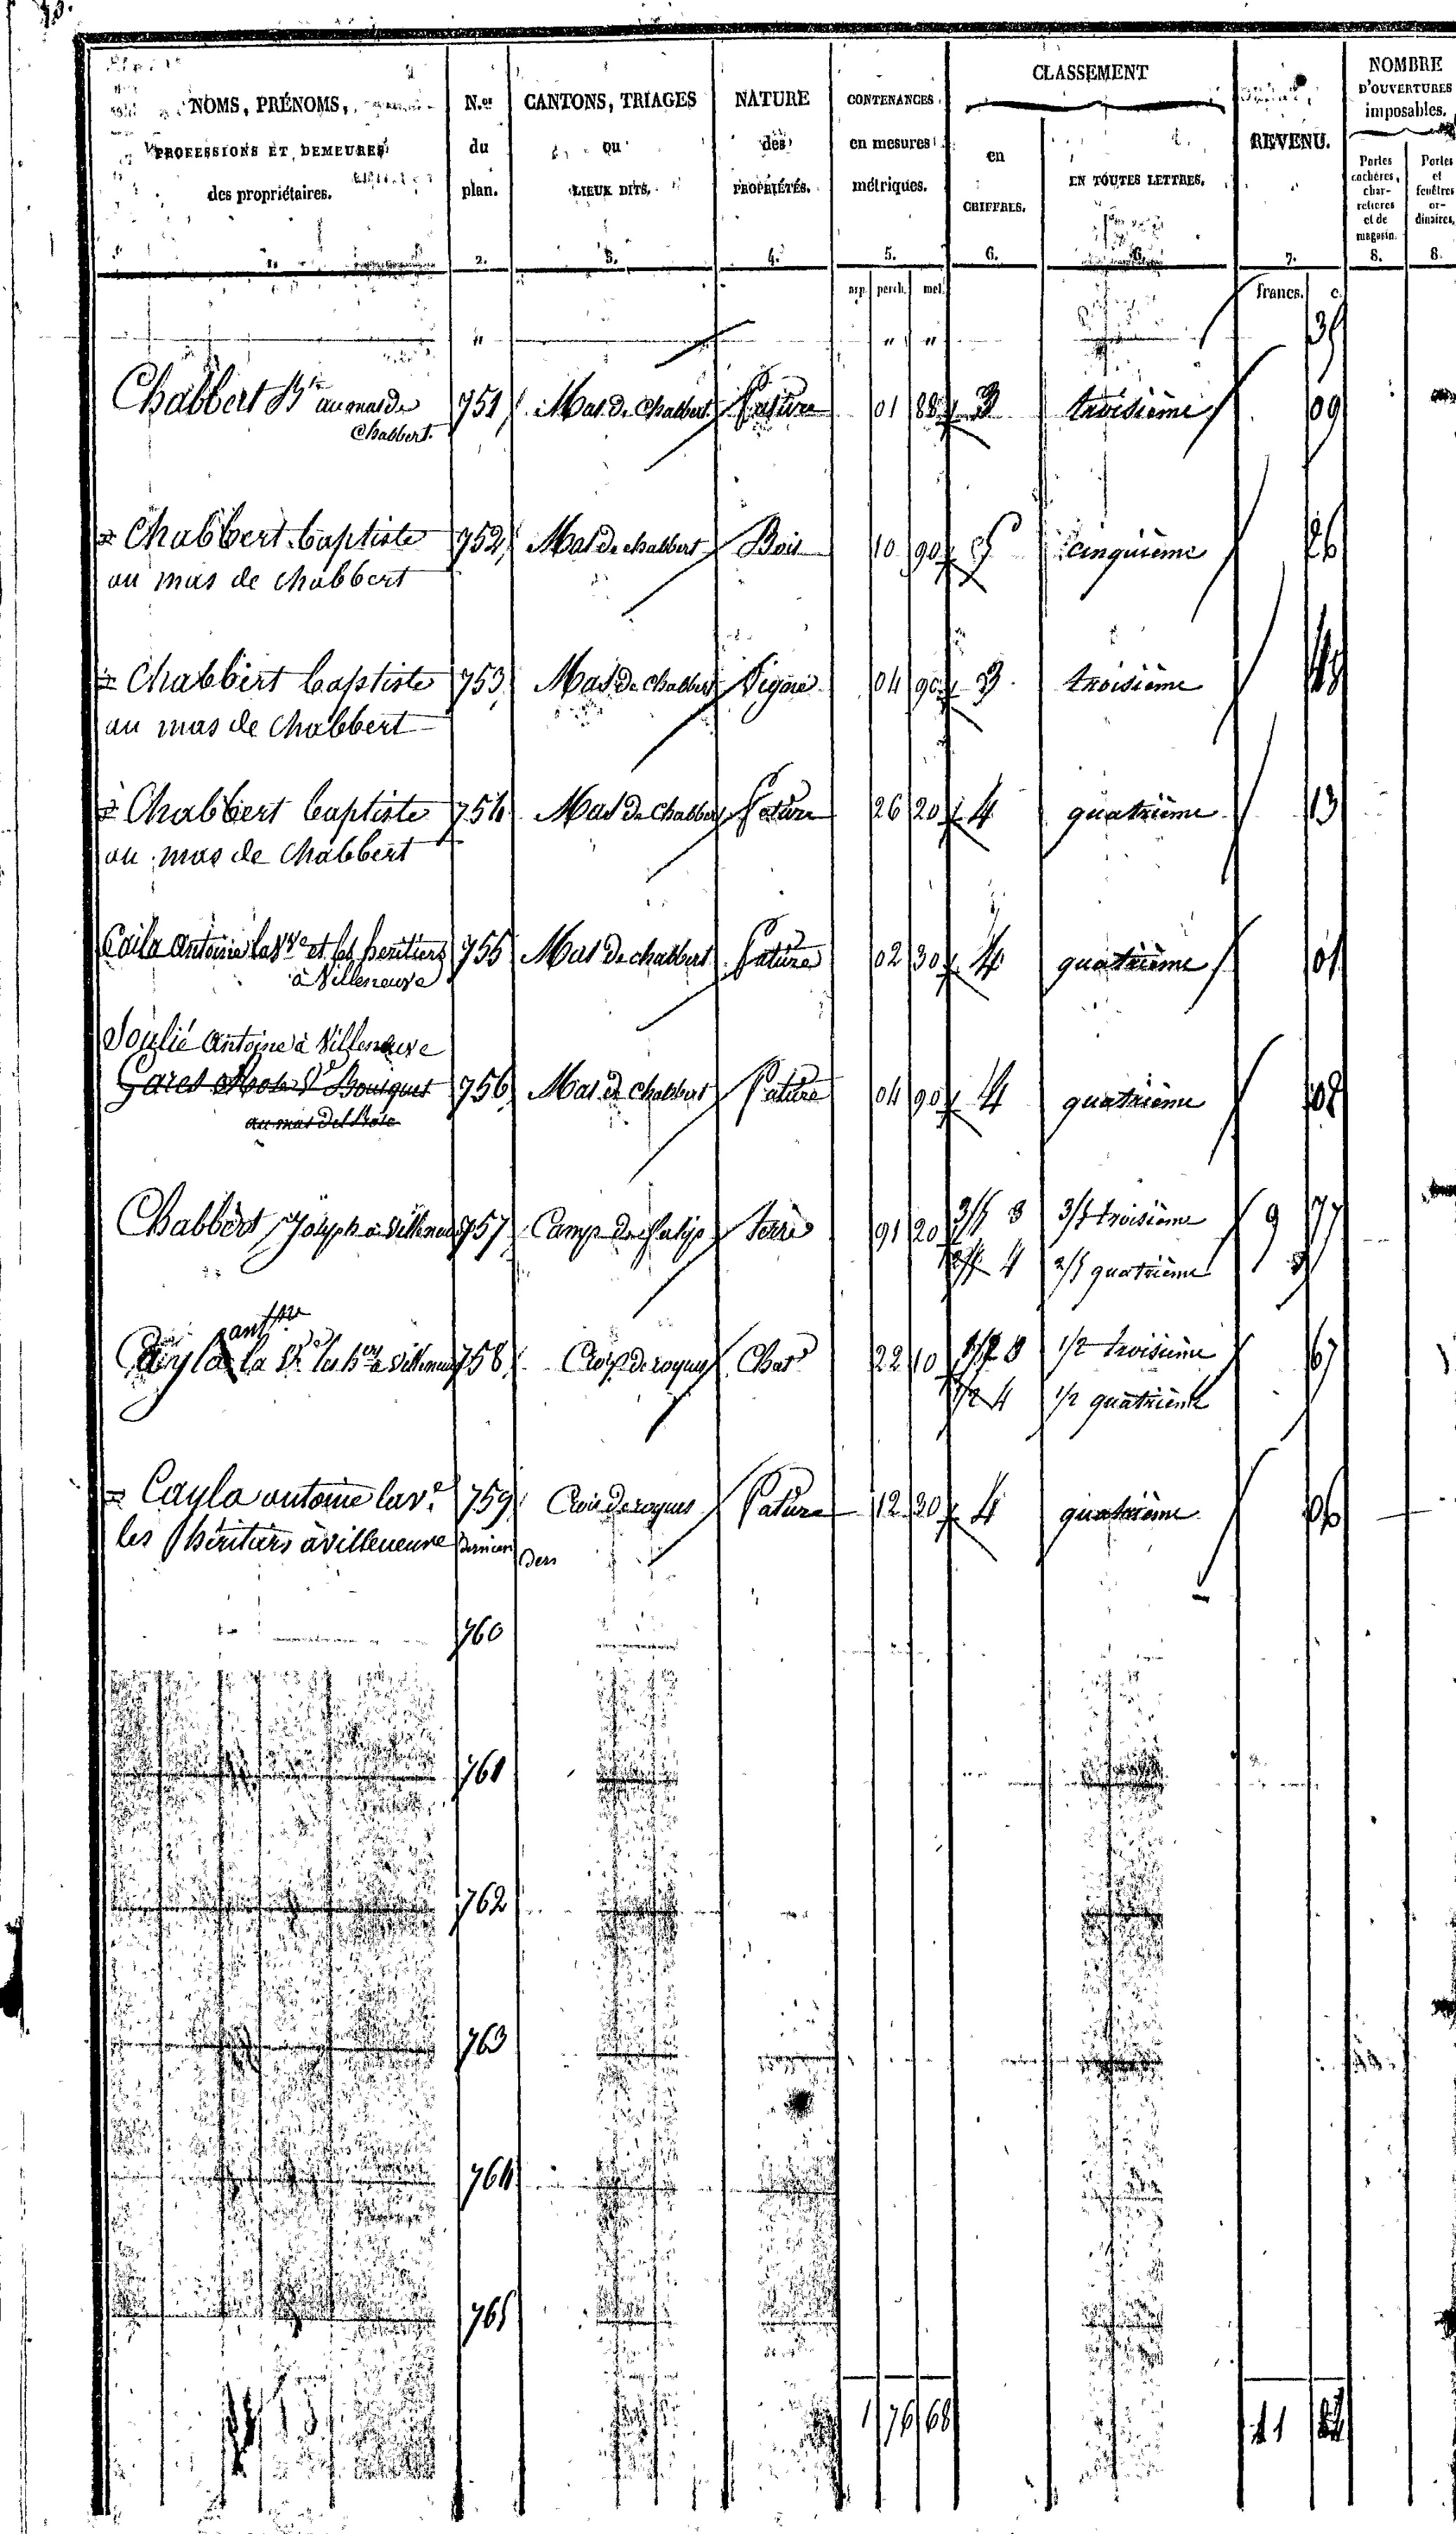 NOMS, PRÉNOMS,
PROFESSIONS ET DEMEURES
des propriétaires.
1.
N.os
du
plan.
2.
CANTONS, TRIAGES
ou
LIEUX DITS.
3.
NATURE
des
PROPRIÉTÉS.
4.
CONTENANCES
en mesures
métriques.
5.
arp. perch. met.
CLASSEMENT
en
CHIFFRES.
6.
EN TOUTES LETTRES.
6.
REVENU.
7.
francs. c.
NOMBRE
D'OUVERTURES
imposables.
Portes
cochères,
char-
retières
et de
magasin.
8.
Portes
et
fenêtres
or-
dinaires,
8.
" " "
Chabbert Bte au mas de 751 Mas de Chabbert Pature 01 88 3 troisième 09
Chabbert.
Chabbert baptiste 752 Mas de chabbert Bois 10 90 5 cinquième 26
au mas de chabbert
Chabbert baptiste 753 Mas de Chabbert Vigne 04 90 3 troisième
au mas de Chabbert
Chabbert baptiste 754 Mas de Chabbert Pature 26 20 4 quatrième 13
au mas de Chabbert
Caila Antoine la Ve et les heritiers 755 Mas de chabbert Pature 02 30 4 quatrième 01
à Villeneuve
Soulié Antoine à Villeneuve
756 Mas de Chabbert Pature 04 90 4 quatrième 02
Chabbert Joseph à Villeneuve 757 Camp de Terre 91 20 3/5 3 3/5 troisième 9 77
2/5 4 2/5 quatrième
antne
Cayla la Ve les hers à Villeneuve 758 Croix de roques Chat 22 10 1/2 3 1/2 troisième 67
1/2 4 1/2 quatrième
Cayla antoine la ve 759 Croix de roques Pature 12 30 4 quatrième 06
les héritiers à villeneuve dernier
Ders
760
761
762
763
764
765
1 76 68 11